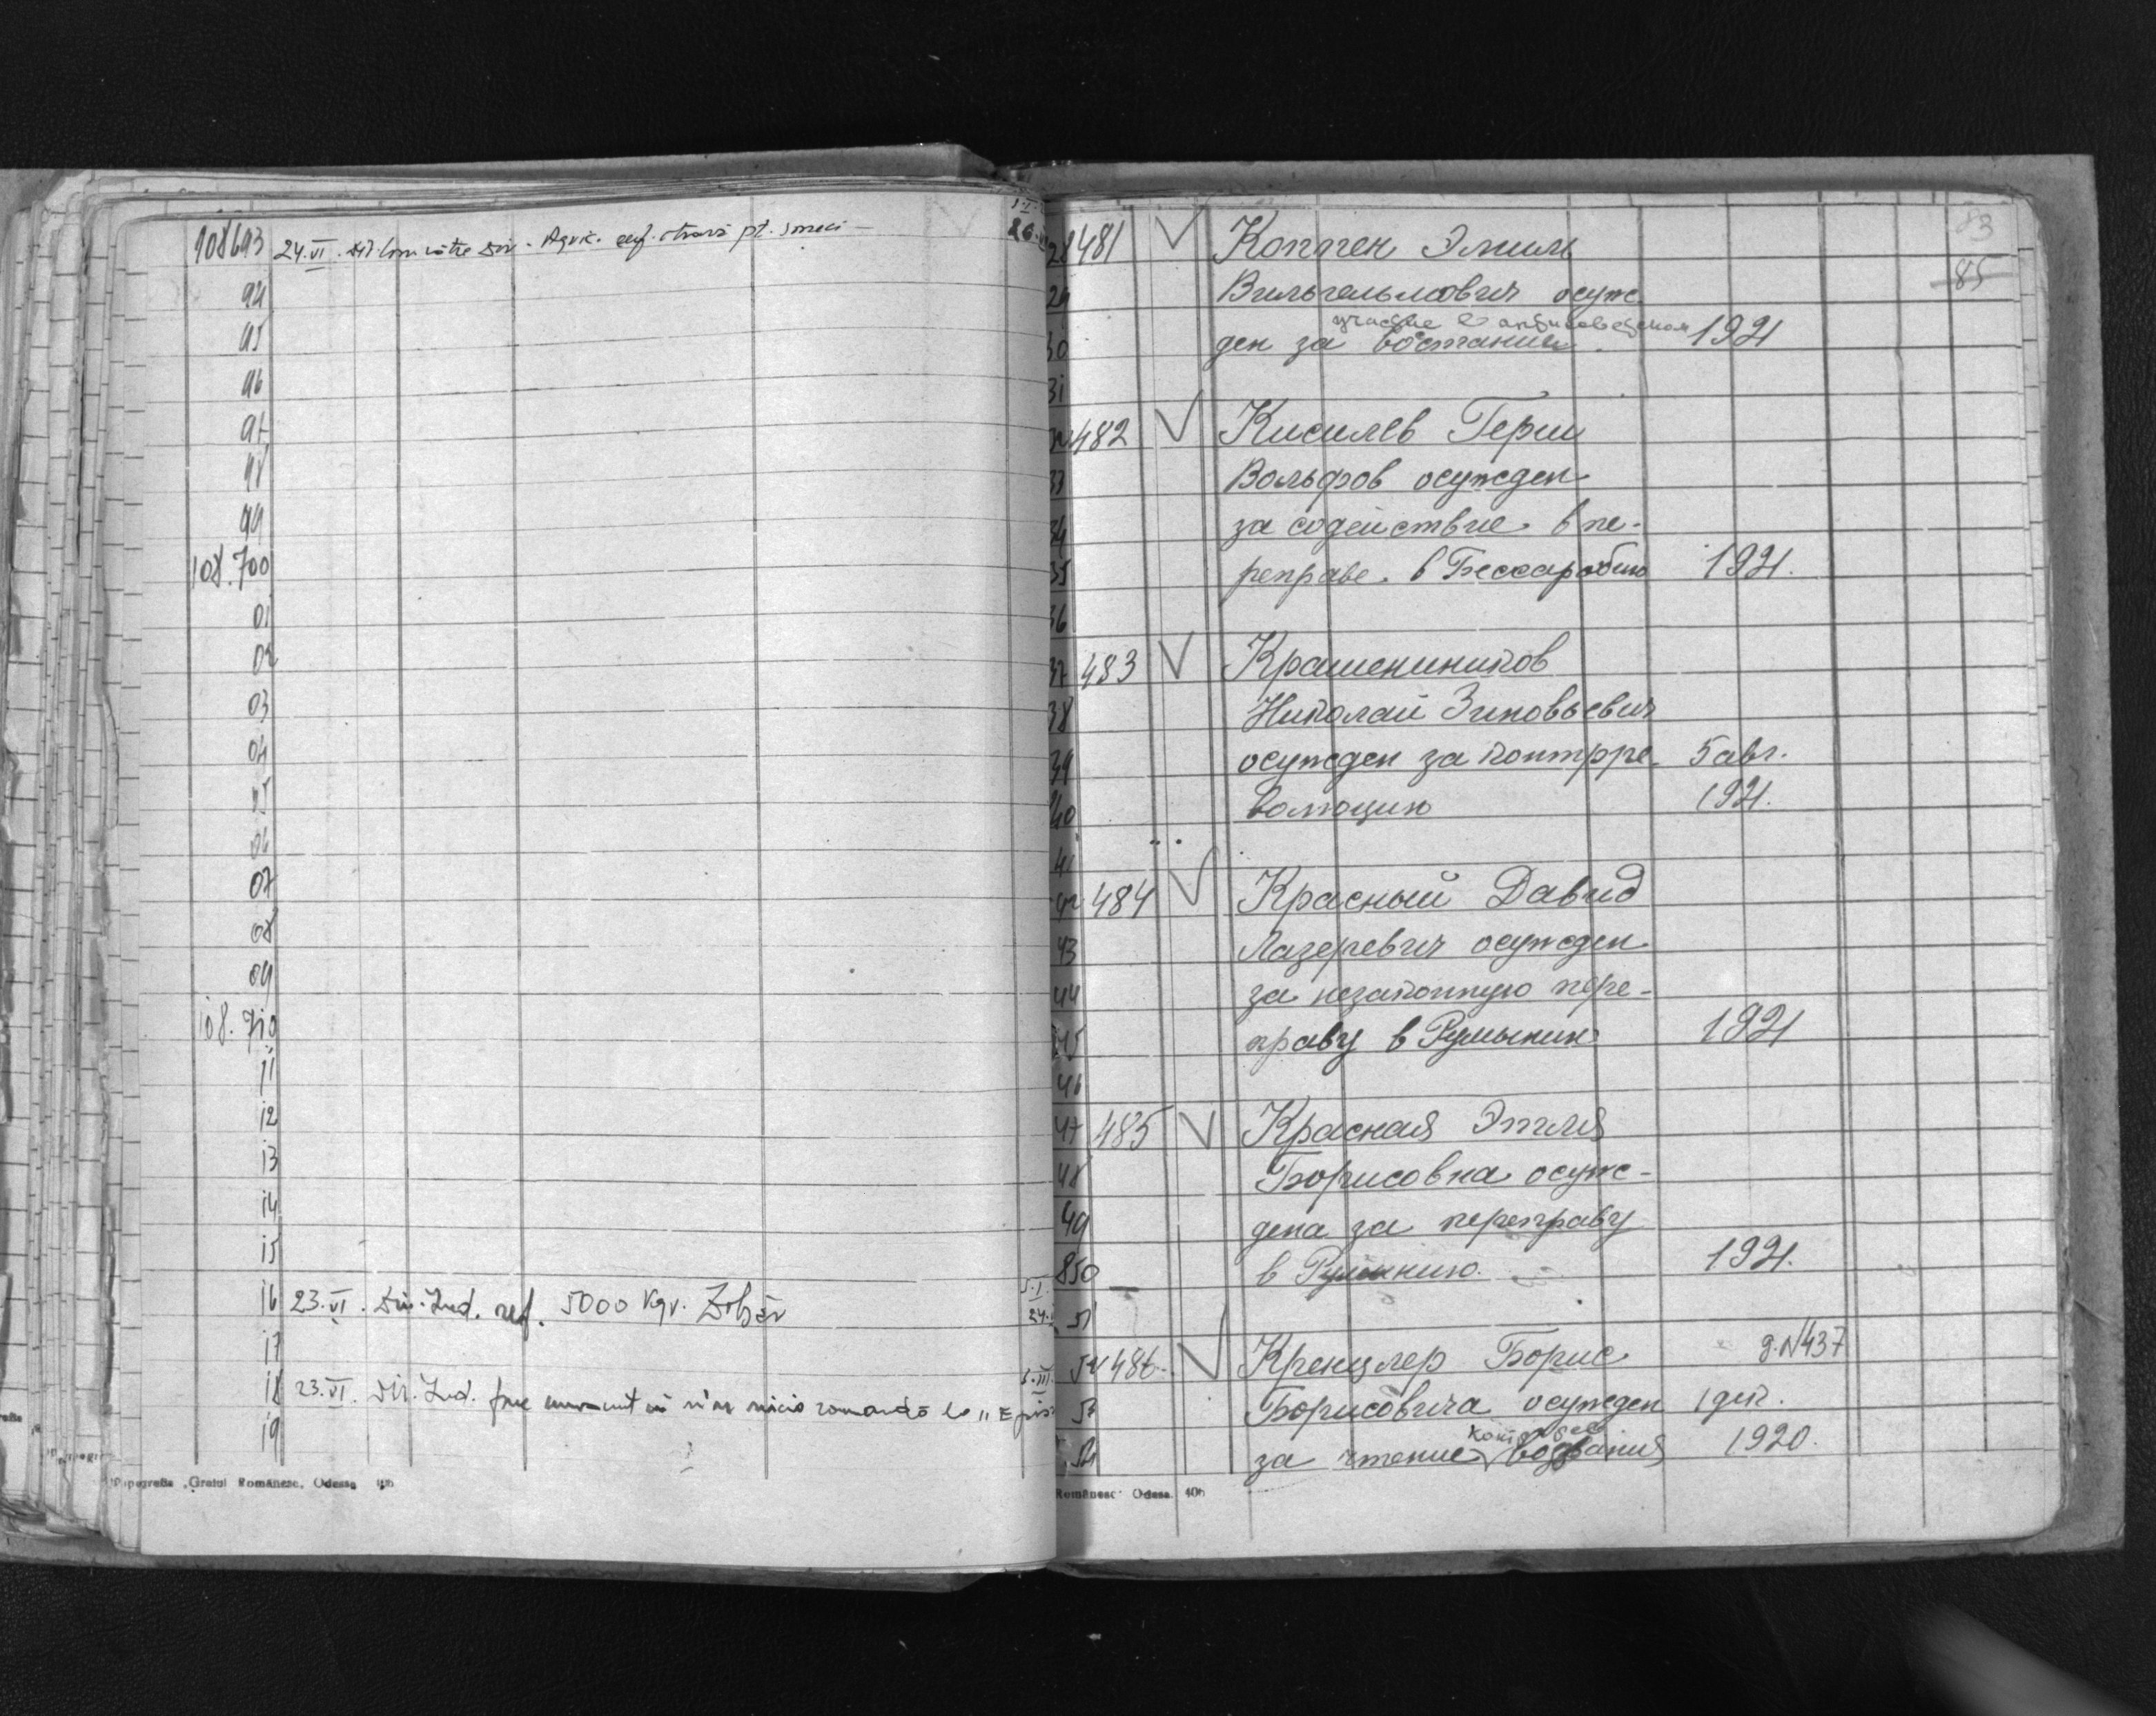 108693 24.VI. Dir. către Dir. Agric. ref. otravă pt. șoareci
94
95
96
97
98
99
108.700
01
02
03
04
05
06
07
08
09
108.710
11
12
13
14
15
16 23.VI. Dir. Ind. ref. 5000 kgr. Zahăr
17
18 23.VI. Dir. Ind. comandă
19
Tipografia „Graiul Românesc, Odessa
83
85
28 481 V Коппен Эмиль
29 Вильгельмович осуж
участие в антисоветском
30 ден за востание. 1921
31
32 482 V Кисилев Герш
33 Вольфов осужден
34 за содействие в пе-
35 реправе в Бессаробию 1921.
36
37 483 V Крашенинников
38 Николай Зиновьевич
39 осужден за контрре- 5 авг.
40 волюцию 1921.
41
42 484 V Красный Давид
43 Лазеревич осужден
44 за незаконную пере-
45 праву в Румынию 1921
46
47 485 V Красная Этля
48 Борисовна осуж-
49 дена за переправу
850 в Румынию. 1921.
51
52 486 V Кренцлер Борис д. N437
53 Борисовича осужден 1 дек.
54 за чтение воззвания 1920.
Românesc Odesa